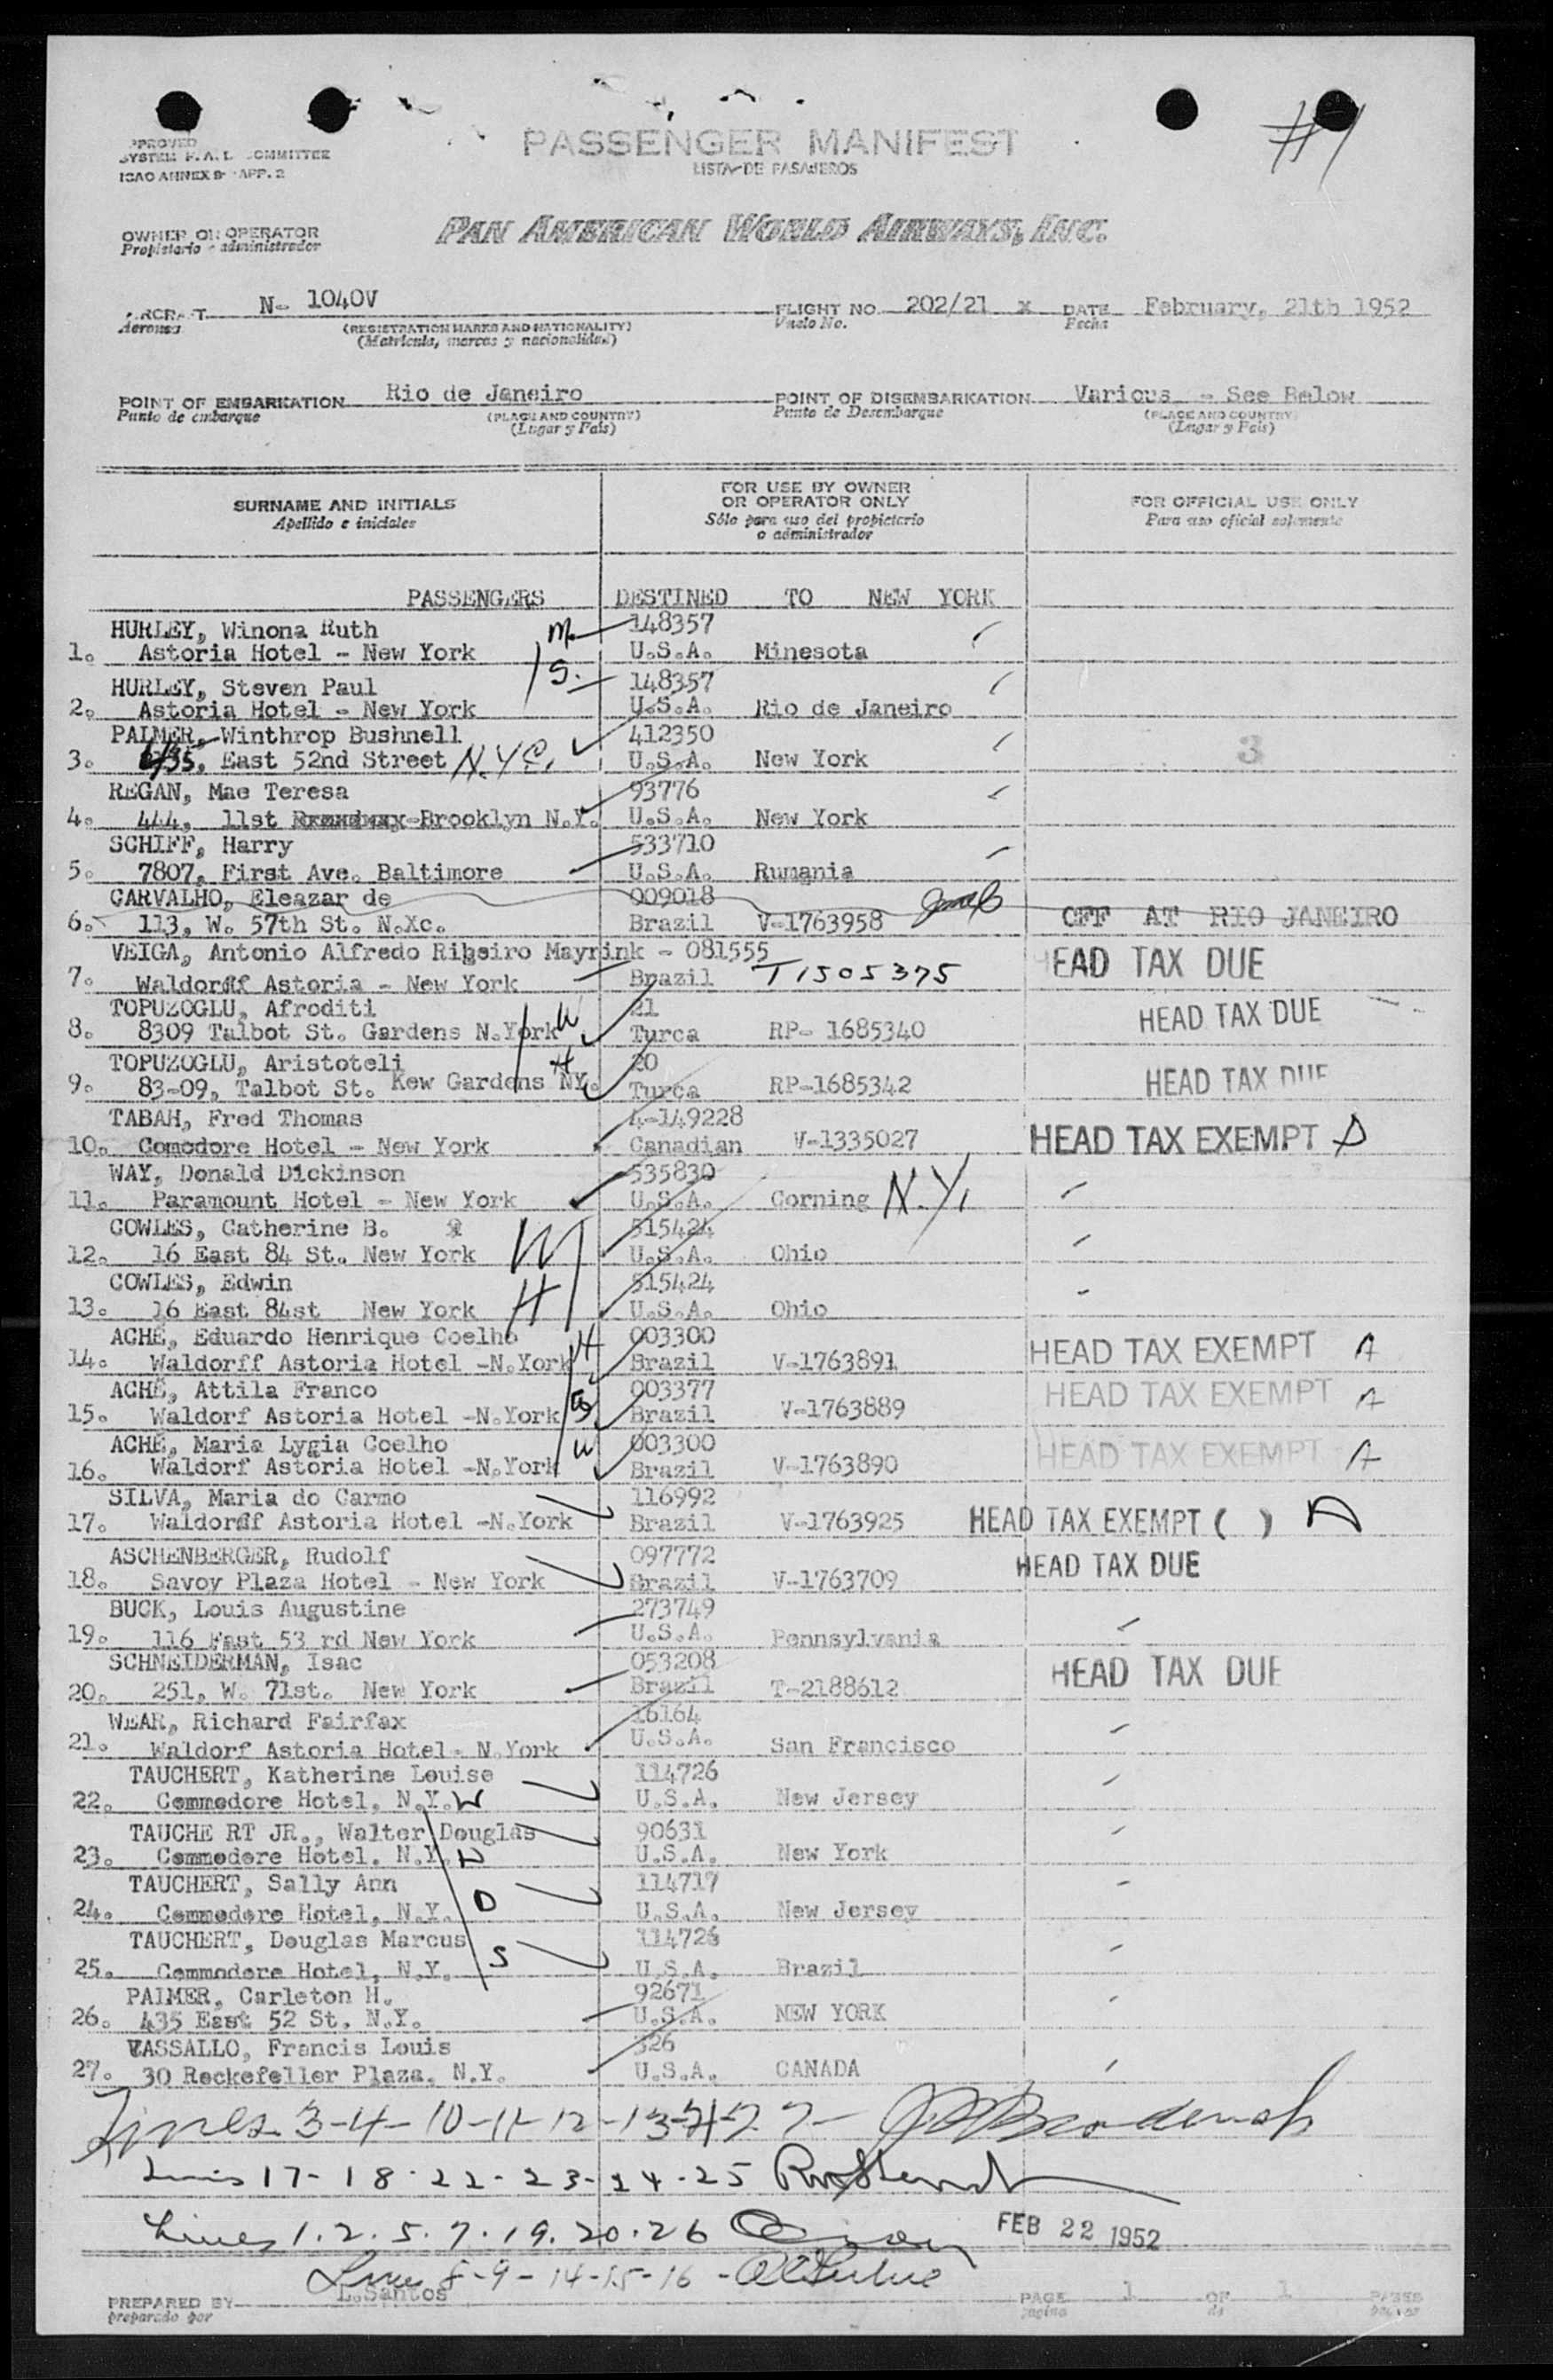 #1
APPROVED
SYSTEM F.A.L. COMMITTEE
ICAO ANNEX 9 APP. 2
PASSENGER MANIFEST
LISTA DE PASAJEROS
OWNER OR OPERATOR
Propietario o administrador
PAN AMERICAN WORLD AIRWAYS, INC.
AIRCRAFT N- 1040V FLIGHT NO. 202/21 x DATE February, 21th 1952
Aeronave (REGISTRATION MARKS AND NATIONALITY) Vuelo No. Fecha
(Matricula, marcas y nacionalidad)
POINT OF EMBARKATION Rio de Janeiro POINT OF DISEMBARKATION Various - See Below
Punto de embarque (PLACE AND COUNTRY) Punto de Desembarque (PLACE AND COUNTRY)
(Lugar y Pais) (Lugar y Pais)
SURNAME AND INITIALS FOR USE BY OWNER OR OPERATOR ONLY FOR OFFICIAL USE ONLY
Apellido e iniciales Sólo para uso del propietario o administrador Para uso oficial solamente
PASSENGERS DESTINED TO NEW YORK
HURLEY, Winona Ruth M. 148357
1. Astoria Hotel - New York U.S.A. Minesota
HURLEY, Steven Paul S. 148357
2. Astoria Hotel - New York U.S.A. Rio de Janeiro
PALMER, Winthrop Bushnell 412350
3. 435, East 52nd Street N.Y.C. U.S.A. New York 3
REGAN, Mae Teresa 93776
4. 444, 11st Brooklyn N.Y. U.S.A. New York
SCHIFF, Harry 533710
5. 7807, First Ave. Baltimore U.S.A. Rumania
CARVALHO, Eleazar de 009018
6. 113, W. 57th St. N.Xc. Brazil V-1763958 OFF AT RIO JANEIRO
VEIGA, Antonio Alfredo Ribeiro Mayrink - 081555 HEAD TAX DUE
7. Waldorff Astoria - New York Brazil T1505375
TOPUZOGLU, Afroditi W 21
8. 8309 Talbot St. Gardens N.York Turca RP- 1685340 HEAD TAX DUE
TOPUZOGLU, Aristoteli H 20
9. 83-09, Talbot St. Kew Gardens NY. Turca RP-1685342 HEAD TAX DUE
TABAH, Fred Thomas 4-149228
10. Comodore Hotel - New York Canadian V-1335027 HEAD TAX EXEMPT A
WAY, Donald Dickinson 535830
11. Paramount Hotel - New York U.S.A. Corning N.Y.
COWLES, Catherine B. 515424
12. 16 East 84 St. New York W U.S.A. Ohio
COWLES, Edwin 515424
13. 16 East 84st New York H U.S.A. Ohio
ACHÉ, Eduardo Henrique Coelho H 003300
14. Waldorff Astoria Hotel -N.York Brazil V-1763891 HEAD TAX EXEMPT A
ACHÉ, Attila Franco 003377
15. Waldorf Astoria Hotel -N.York Brazil V-1763889 HEAD TAX EXEMPT A
ACHÉ, Maria Lygia Coelho W 003300
16. Waldorf Astoria Hotel -N.York Brazil V-1763890 HEAD TAX EXEMPT A
SILVA, Maria do Carmo 116992
17. Waldorff Astoria Hotel -N.York Brazil V-1763925 HEAD TAX EXEMPT ( ) A
ASCHENBERGER, Rudolf 097772 HEAD TAX DUE
18. Savoy Plaza Hotel - New York Brazil V-1763709
BUCK, Louis Augustine 273749
19. 116 East 53 rd New York U.S.A. Pennsylvania
SCHNEIDERMAN, Isac 053208 HEAD TAX DUE
20. 251, W. 71st. New York Brazil T-2188612
WEAR, Richard Fairfax 16164
21. Waldorf Astoria Hotel- N.York U.S.A. San Francisco
TAUCHERT, Katherine Louise 114726
22. Commodore Hotel, N.Y. W U.S.A. New Jersey
TAUCHE RT JR., Walter Douglas 90631
23. Commodore Hotel. N.Y. U.S.A. New York
TAUCHERT, Sally Ann 114717
24. Commodore Hotel, N.Y. D U.S.A. New Jersey
TAUCHERT, Douglas Marcus 114726
25. Commodore Hotel, N.Y. S U.S.A. Brazil
PALMER, Carleton H. 92671
26. 435 East 52 St. N.Y. U.S.A. NEW YORK
VASSALLO, Francis Louis 326
27. 30 Rockefeller Plaza, N.Y. U.S.A. CANADA
Lines 3-4-10-11-12-13-21-27-
Lines 17-18-22-23-24-25
Lines 1.2.5.7.19.20.26 FEB 22 1952
Lines 8-9-14-15-16-
PREPARED BY L.Santos PAGE 1 OF 1 PAGES
preparado por pagina de paginas